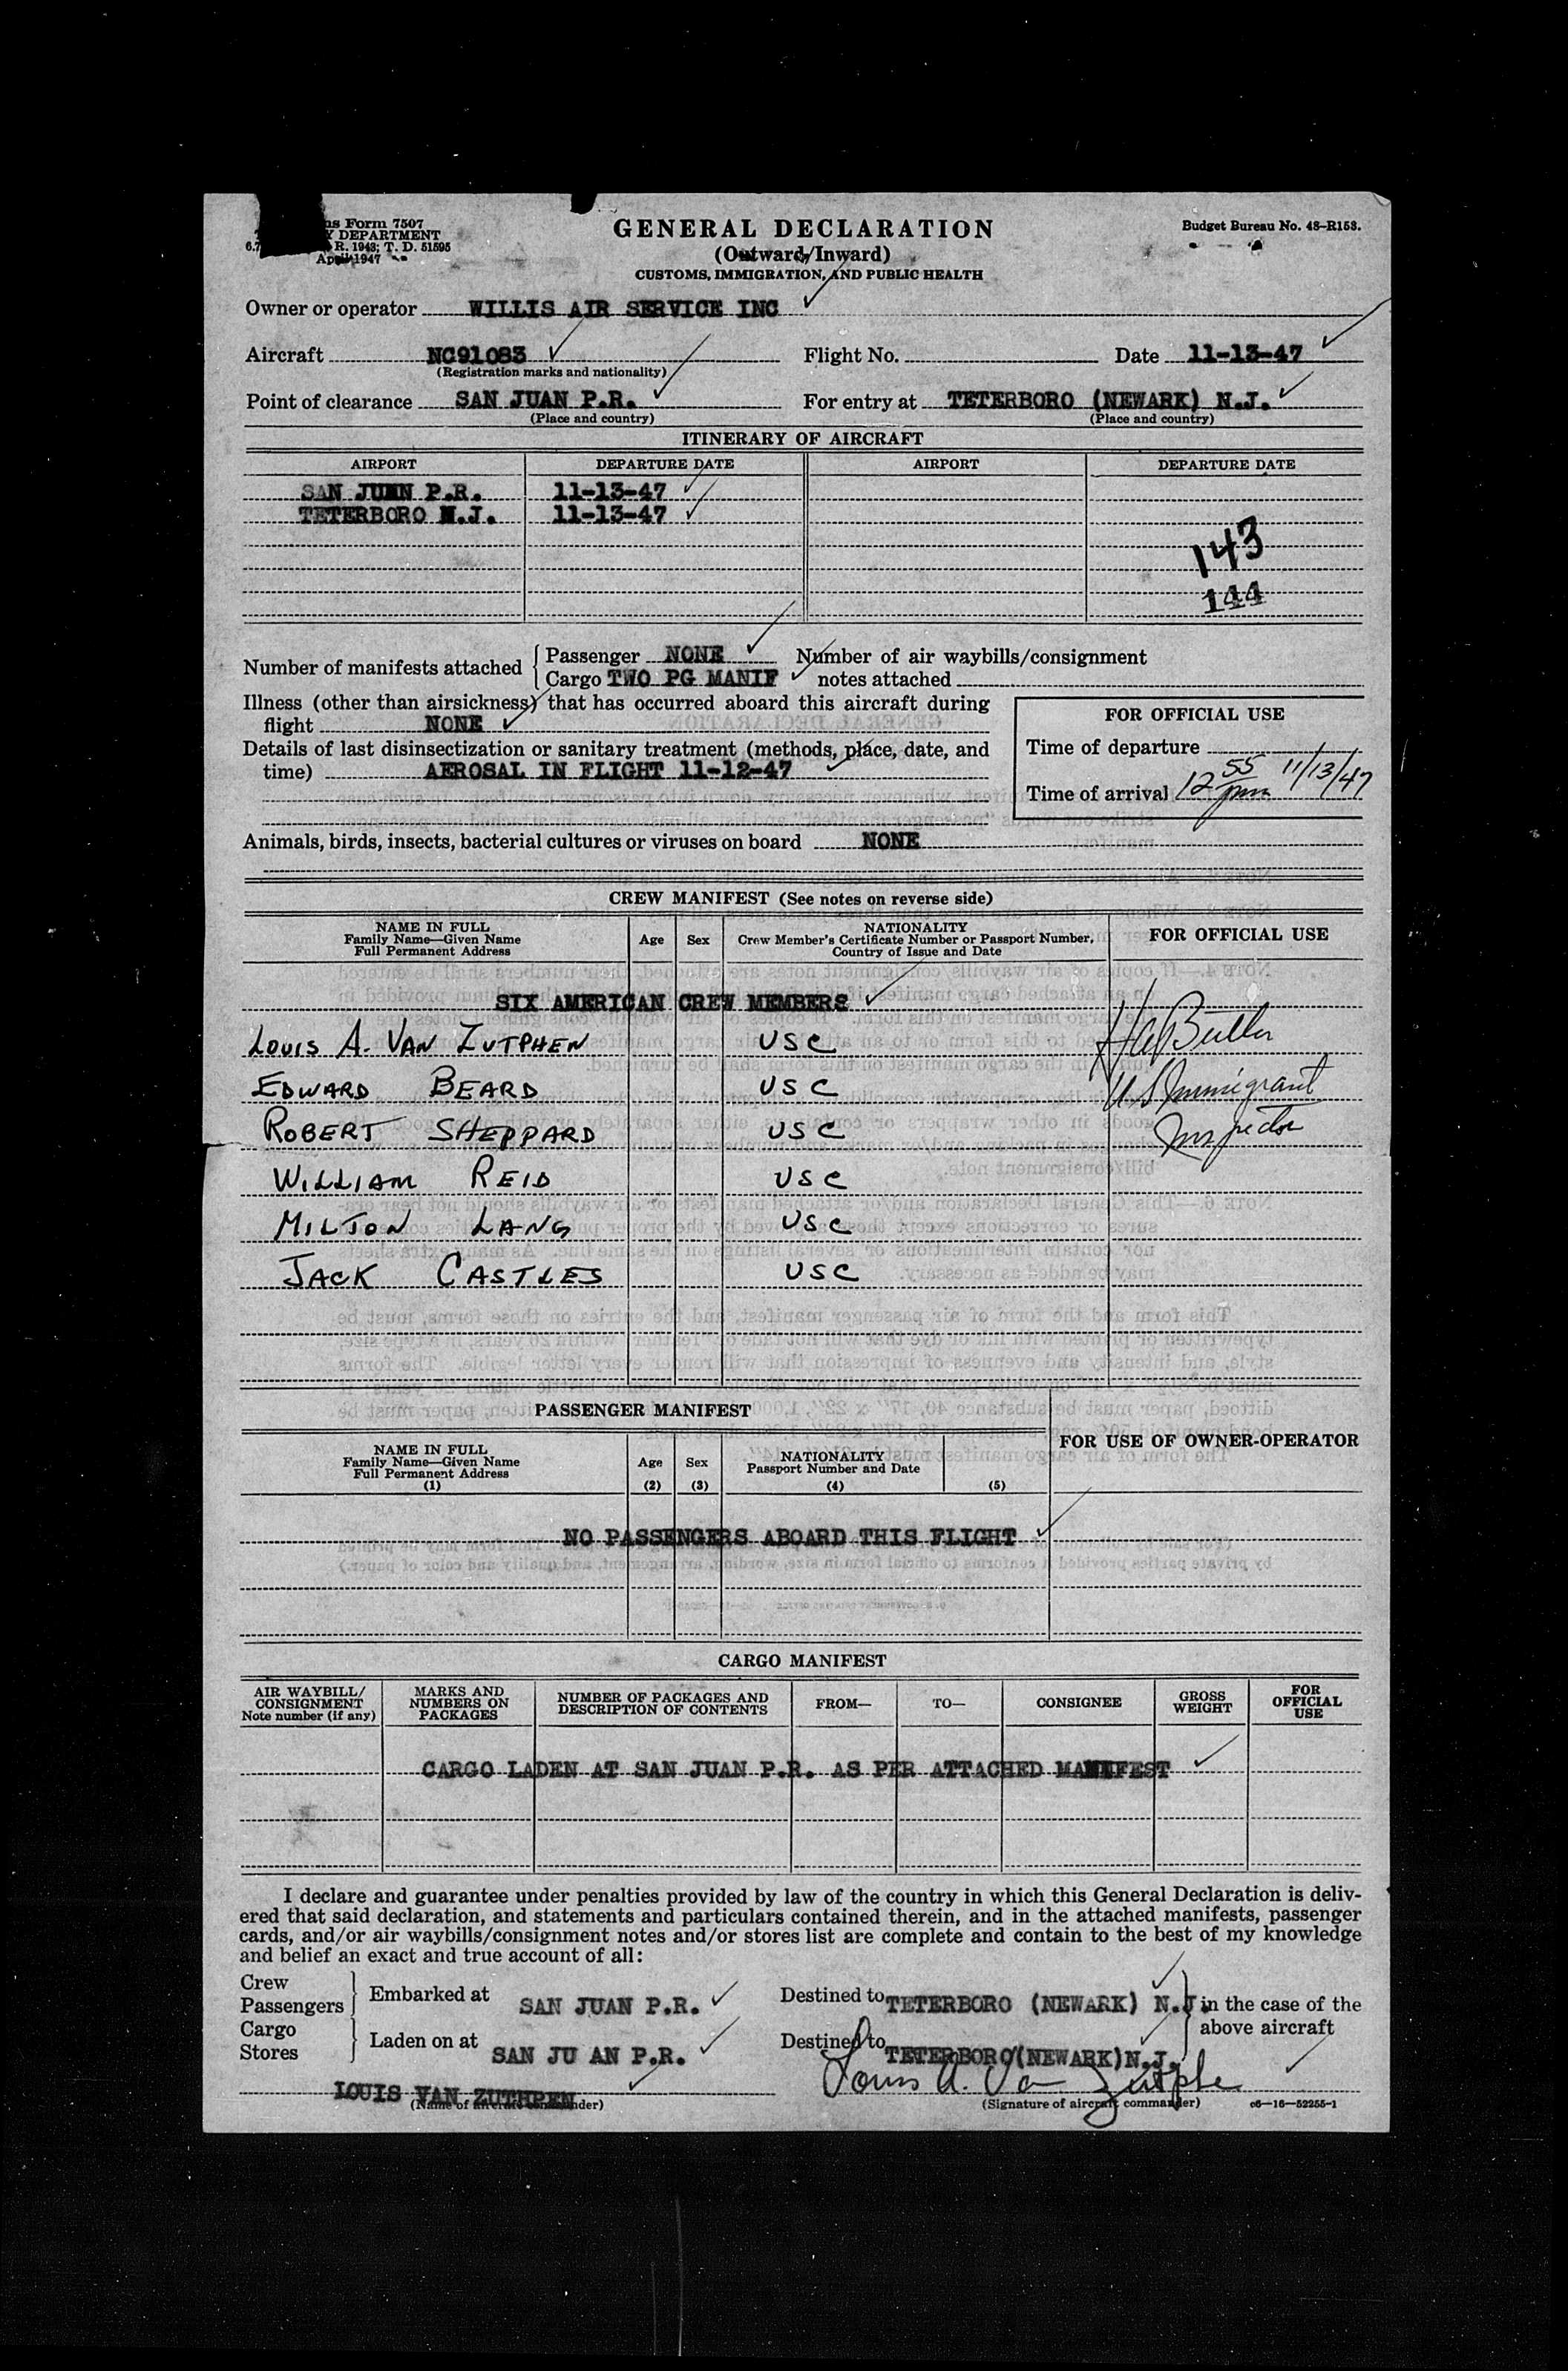 ns Form 7507
Y DEPARTMENT
R. 1943; T. D. 51595
April 1947
GENERAL DECLARATION
(Outward/Inward)
CUSTOMS, IMMIGRATION, AND PUBLIC HEALTH
Budget Bureau No. 48–R153.
Owner or operator WILLIS AIR SERVICE INC
Aircraft NC91083 Flight No. Date 11-13-47
(Registration marks and nationality)
Point of clearance SAN JUAN P.R. For entry at TETERBORO (NEWARK) N.J.
(Place and country) (Place and country)
ITINERARY OF AIRCRAFT
AIRPORT DEPARTURE DATE AIRPORT DEPARTURE DATE
SAN JUAN P.R. 11-13-47
TETERBORO N.J. 11-13-47
143
144
Number of manifests attached Passenger NONE Number of air waybills/consignment
Cargo TWO PG MANIF notes attached
Illness (other than airsickness) that has occurred aboard this aircraft during
flight NONE
Details of last disinsectization or sanitary treatment (methods, place, date, and
time) AEROSAL IN FLIGHT 11-12-47
FOR OFFICIAL USE
Time of departure
Time of arrival 12 55 pm 11/13/47
Animals, birds, insects, bacterial cultures or viruses on board NONE
CREW MANIFEST (See notes on reverse side)
NAME IN FULL
Family Name—Given Name
Full Permanent Address
Age Sex
NATIONALITY
Crew Member's Certificate Number or Passport Number,
Country of Issue and Date
FOR OFFICIAL USE
SIX AMERICAN CREW MEMBERS
LOUIS A. VAN ZUTPHEN USC
EDWARD BEARD USC
ROBERT SHEPPARD USC
WILLIAM REID USC
MILTON LANG USC
JACK CASTLES USC
Butler
US Immigrant
Inspector
PASSENGER MANIFEST
NAME IN FULL
Family Name—Given Name
Full Permanent Address
(1)
Age
(2)
Sex
(3)
NATIONALITY
Passport Number and Date
(4) (5)
FOR USE OF OWNER-OPERATOR
NO PASSENGERS ABOARD THIS FLIGHT
CARGO MANIFEST
AIR WAYBILL/
CONSIGNMENT
Note number (if any)
MARKS AND
NUMBERS ON
PACKAGES
NUMBER OF PACKAGES AND
DESCRIPTION OF CONTENTS
FROM— TO— CONSIGNEE
GROSS
WEIGHT
FOR
OFFICIAL
USE
CARGO LADEN AT SAN JUAN P.R. AS PER ATTACHED MANIFEST
I declare and guarantee under penalties provided by law of the country in which this General Declaration is deliv-
ered that said declaration, and statements and particulars contained therein, and in the attached manifests, passenger
cards, and/or air waybills/consignment notes and/or stores list are complete and contain to the best of my knowledge
and belief an exact and true account of all:
Crew
Passengers Embarked at SAN JUAN P.R. Destined to TETERBORO (NEWARK) N.J. in the case of the
above aircraft
Cargo
Stores Laden on at SAN JU AN P.R. Destined to TETERBORO(NEWARK)N.J.
LOUIS VAN ZUTHPEN Louis A. Van Zutphe
(Name of aircraft commander) (Signature of aircraft commander) c6—16—52255-1